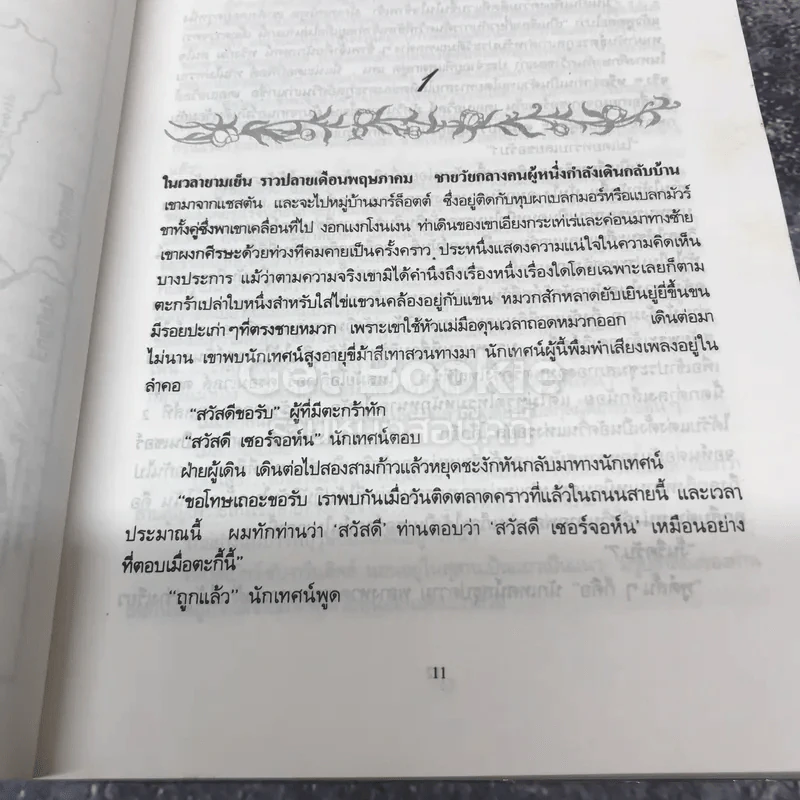 1
ในเวลายามเย็น ราวปลายเดือนพฤษภาคม ชายวัยกลางคนผู้หนึ่งกำลังเดินกลับบ้าน
เขามาจากแชสตัน และจะไปหมู่บ้านมาร์ล็อตต์ ซึ่งอยู่ติดกับหุบผาเบลกมอร์หรือแบลกมัวร์
ขาทั้งคู่ซึ่งพาเขาเคลื่อนที่ไป งอกแงกโงนเงน ท่าเดินของเขาเอียงกระเท่เร่และค่อนมาทางซ้าย
เขาผงกศีรษะด้วยท่วงทีคมคายเป็นครั้งคราว ประหนึ่งแสดงความแน่ใจในความคิดเห็น
บางประการ แม้ว่าตามความจริงเขามิได้คำนึงถึงเรื่องหนึ่งเรื่องใดโดยเฉพาะเลยก็ตาม
ตะกร้าเปล่าใบหนึ่งสำหรับใส่ไข่แขวนคล้องอยู่กับแขน หมวกสักหลาดยับเยินยู่ยี่ขึ้นขน
มีรอยปะเก่าๆที่ตรงชายหมวก เพราะเขาใช้หัวแม่มือดุนเวลาถอดหมวกออก เดินต่อมา
ไม่นาน เขาพบนักเทศน์สูงอายุขี่ม้าสีเทาสวนทางมา นักเทศน์ผู้นี้พึมพำเสียงเพลงอยู่ใน
ลำคอ
Get Bookie
"สวัสดีขอรับ" ผู้ที่มีตะกร้าทัก
"สวัสดี เซอร์จอห์น" นักเทศน์ตอบ
ฝ่ายผู้เดิน เดินต่อไปสองสามก้าวแล้วหยุดชะงักหันกลับมาทางนักเทศน์
"ขอโทษเถอะขอรับ เราพบกันเมื่อวันติดตลาดคราวที่แล้วในถนนสายนี้ และเวลา
ประมาณนี้ ผมทักท่านว่า 'สวัสดี' ท่านตอบว่า 'สวัสดี เซอร์จอห์น' เหมือนอย่าง
ที่ตอบเมื่อตะกี้นี้"
"ถูกแล้ว" นักเทศน์พูด
11